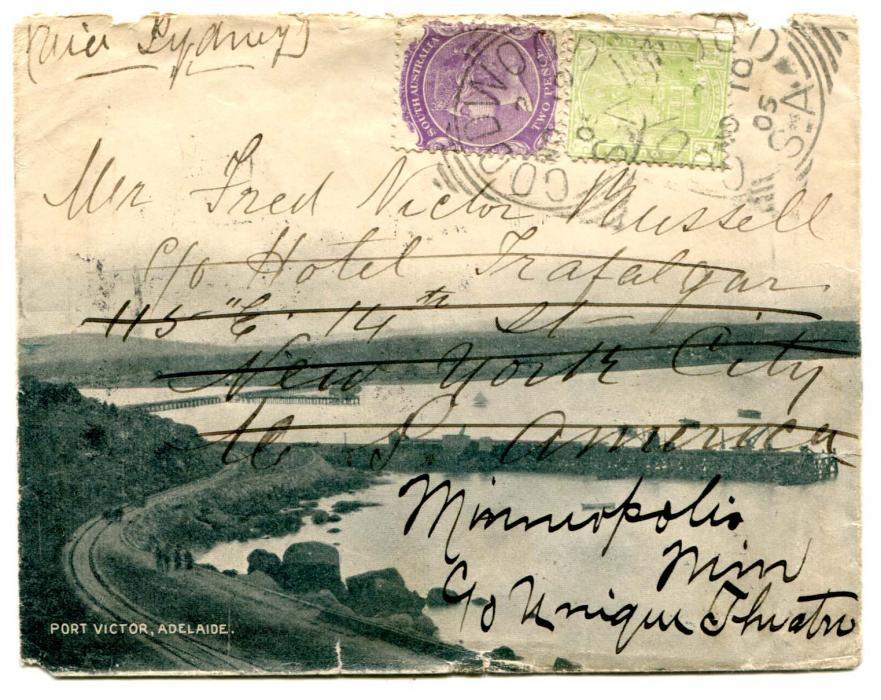 (via Sydney)
SOUTH AUSTRALIA
TWO PENCE
GOODWOOD
10
05
S.A
Mr Fred Victor Mussell
c/o Hotel Trafalgar
115 "E" 14th St
New York City
U S America
Minneopolis
Minn
c/o Unique Theatre
PORT VICTOR, ADELAIDE.